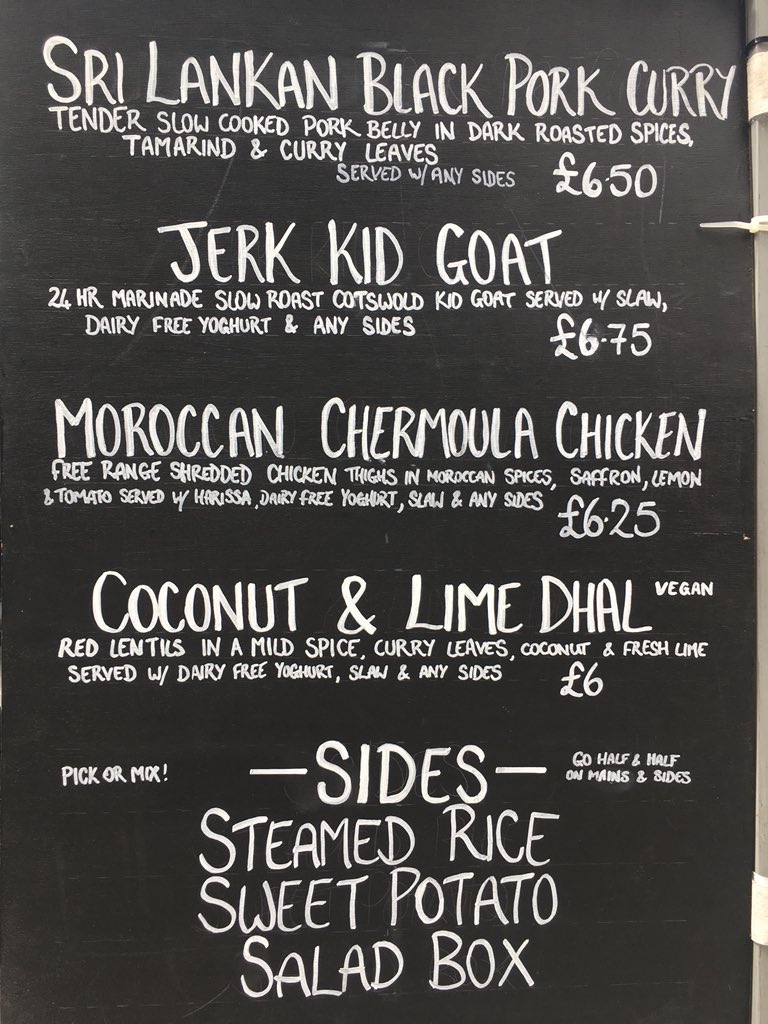 SRI LANKAN BLACK PORK CURRY
TENDER SLOW COOKED PORK BELLY IN DARK ROASTED SPICES,
TAMARIND & CURRY LEAVES
SERVED W/ ANY SIDES £6.50
JERK KID GOAT
24 HR MARINADE SLOW ROAST COTSWOLD KID GOAT SERVED W/ SLAW,
DAIRY FREE YOGHURT & ANY SIDES
£6.75
MOROCCAN CHERMOULA CHICKEN
FREE RANGE SHREDDED CHICKEN THIGHS IN MOROCCAN SPICES, SAFFRON, LEMON
& TOMATO SERVED W/ HARISSA, DAIRY FREE YOGHURT, SLAW & ANY SIDES
£6.25
COCONUT & LIME DHAL VEGAN
RED LENTILS IN A MILD SPICE, CURRY LEAVES, COCONUT & FRESH LIME
SERVED W/ DAIRY FREE YOGHURT, SLAW & ANY SIDES £6
PICK OR MIX!
—SIDES—
GO HALF & HALF
ON MAINS & SIDES
STEAMED RICE
SWEET POTATO
SALAD BOX